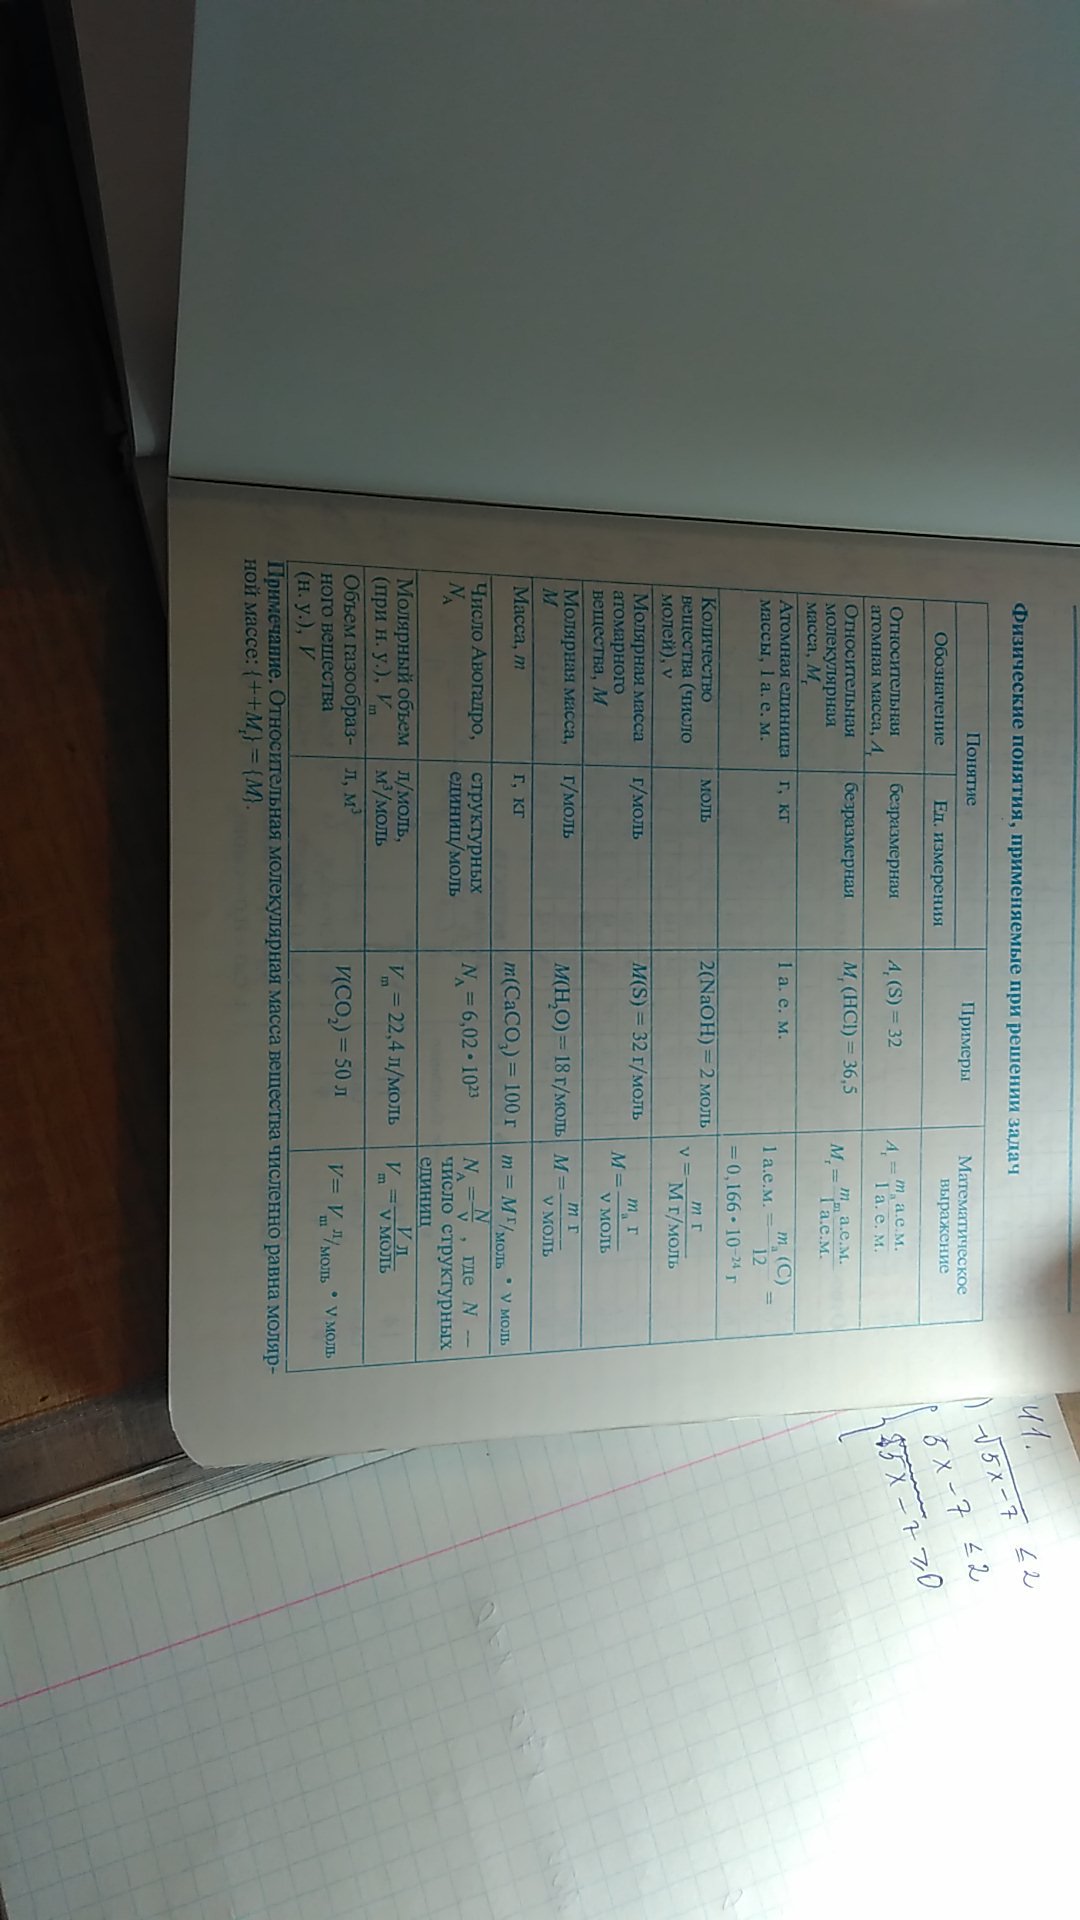 Физические понятия, применяемые при решении задач
Понятие
Примеры
Математическое
выражение
Обозначение
Ед. измерения
Относительная
атомная масса, Aᵣ
безразмерная
Aᵣ (S) = 32
Aᵣ = mₐ а.е.м. / 1 а. е. м.
Относительная
молекулярная
масса, Mᵣ
безразмерная
Mᵣ (HCl) = 36,5
Mᵣ = mₘ а.е.м. / 1 а.е.м.
Атомная единица
массы, 1 а. е. м.
г, кг
1 а. е. м.
1 а.е.м. = mₐ (C) / 12 =
= 0,166 • 10⁻²⁴ г
Количество
вещества (число
молей), ν
моль
2(NaOH) = 2 моль
ν = m г / М г/моль
Молярная масса
атомарного
вещества, M
г/моль
M(S) = 32 г/моль
M = mₐ г / ν моль
Молярная масса,
M
г/моль
M(H₂O) = 18 г/моль
M = m г / ν моль
Масса, m
г, кг
m(CaCO₃) = 100 г
m = M г/моль • ν моль
Число Авогадро,
N_A
структурных
единиц/моль
N_A = 6,02 • 10²³
N_A = N / ν , где N —
число структурных
единиц
Молярный объем
(при н. у.), Vₘ
л/моль,
м³/моль
Vₘ = 22,4 л/моль
Vₘ = V л / ν моль
Объем газообраз-
ного вещества
(н. у.), V
л, м³
V(CO₂) = 50 л
V = Vₘ л/моль • ν моль
Примечание. Относительная молекулярная масса вещества численно равна моляр-
ной массе: {++Mᵣ} = {M}.
41.
) √5x-7 ≤ 2
5x - 7 ≤ 2
5x - 7 ≥ 0